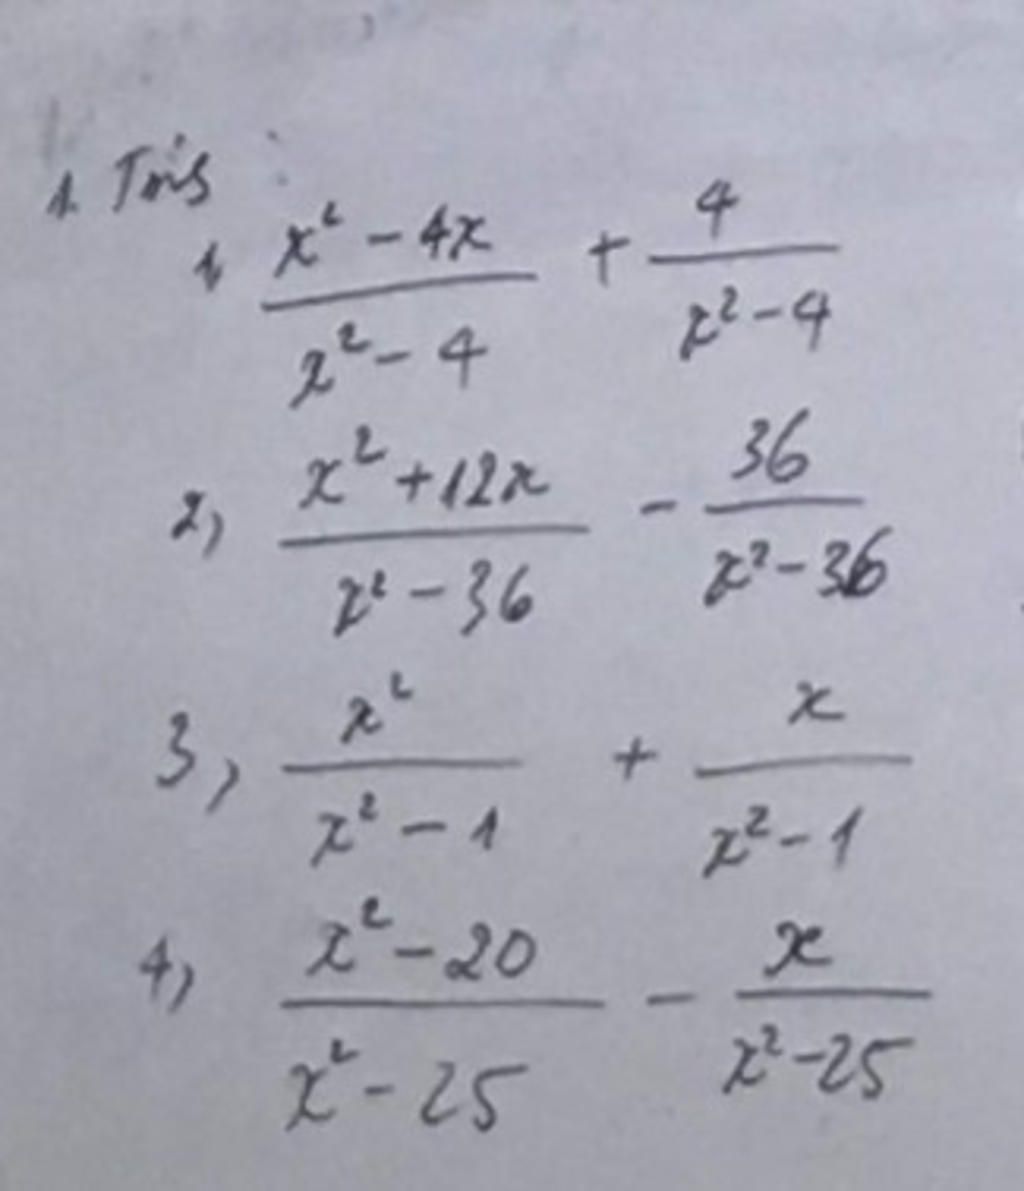 1. Tính :
1, (x² - 4x)/(x² - 4) + 4/(x² - 4)
2, (x² + 12x)/(x² - 36) - 36/(x² - 36)
3, x²/(x² - 1) + x/(x² - 1)
4, (x² - 20)/(x² - 25) - x/(x² - 25)